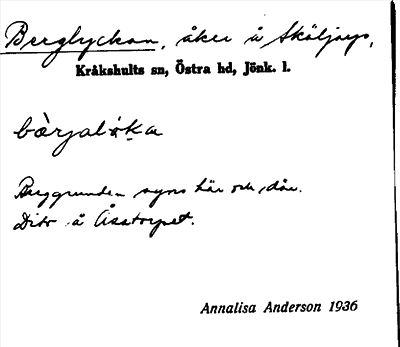 Berglyckan, åker å Sköljarp,
Kråkshults sn, Östra hd, Jönk. l.
bàrjalöka
Berggrunden syns här och där.
Dito å Åsatorpet.
Annalisa Anderson 1936